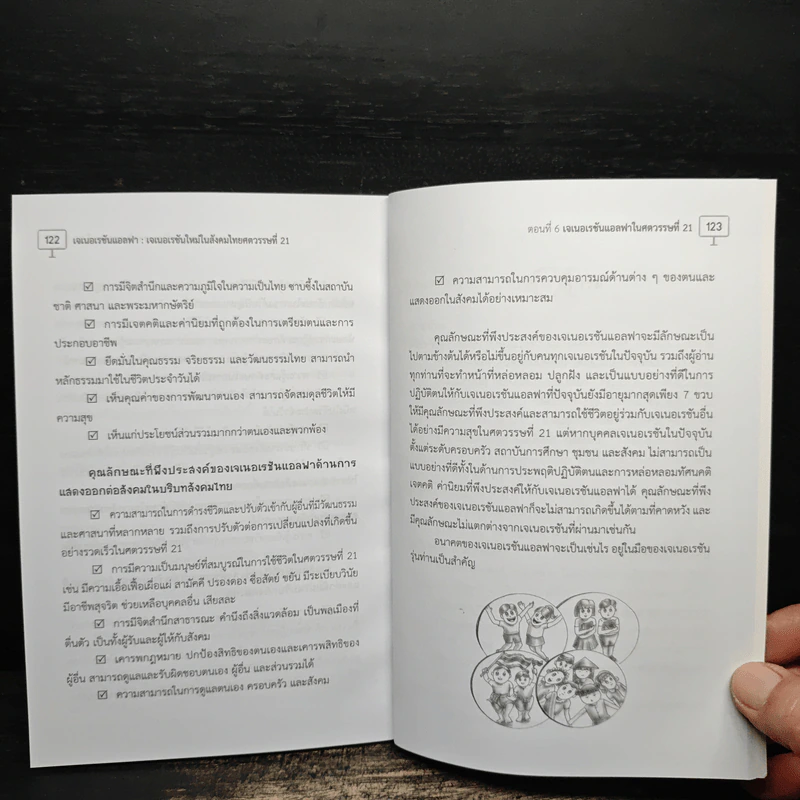 122 เจเนอเรชันแอลฟา : เจเนอเรชันใหม่ในสังคมไทยศตวรรษที่ 21
☑ การมีจิตสำนึกและความภูมิใจในความเป็นไทย ซาบซึ้งในสถาบัน
ชาติ ศาสนา และพระมหากษัตริย์
☑ การมีเจตคติและค่านิยมที่ถูกต้องในการเตรียมตนและการ
ประกอบอาชีพ
☑ ยึดมั่นในคุณธรรม จริยธรรม และวัฒนธรรมไทย สามารถนำ
หลักธรรมมาใช้ในชีวิตประจำวันได้
☑ เห็นคุณค่าของการพัฒนาตนเอง สามารถจัดสมดุลชีวิตให้มี
ความสุข
☑ เห็นแก่ประโยชน์ส่วนรวมมากกว่าตนเองและพวกพ้อง
คุณลักษณะที่พึงประสงค์ของเจเนอเรชันแอลฟาด้านการ
แสดงออกต่อสังคมในบริบทสังคมไทย
☑ ความสามารถในการดำรงชีวิตและปรับตัวเข้ากับผู้อื่นที่มีวัฒนธรรม
และศาสนาที่หลากหลาย รวมถึงการปรับตัวต่อการเปลี่ยนแปลงที่เกิดขึ้น
อย่างรวดเร็วในศตวรรษที่ 21
☑ การมีความเป็นมนุษย์ที่สมบูรณ์ในการใช้ชีวิตในศตวรรษที่ 21
เช่น มีความเอื้อเฟื้อเผื่อแผ่ สามัคคี ปรองดอง ซื่อสัตย์ ขยัน มีระเบียบวินัย
มีอาชีพสุจริต ช่วยเหลือบุคคลอื่น เสียสละ
☑ การมีจิตสำนึกสาธารณะ คำนึงถึงสิ่งแวดล้อม เป็นพลเมืองที่
ตื่นตัว เป็นทั้งผู้รับและผู้ให้กับสังคม
☑ เคารพกฎหมาย ปกป้องสิทธิของตนเองและเคารพสิทธิของ
ผู้อื่น สามารถดูแลและรับผิดชอบตนเอง ผู้อื่น และส่วนรวมได้
☑ ความสามารถในการดูแลตนเอง ครอบครัว และสังคม
ตอนที่ 6 เจเนอเรชันแอลฟาในศตวรรษที่ 21 123
☑ ความสามารถในการควบคุมอารมณ์ด้านต่าง ๆ ของตนและ
แสดงออกในสังคมได้อย่างเหมาะสม
คุณลักษณะที่พึงประสงค์ของเจเนอเรชันแอลฟาจะมีลักษณะเป็น
ไปตามข้างต้นได้หรือไม่ขึ้นอยู่กับคนทุกเจเนอเรชันในปัจจุบัน รวมถึงผู้อ่าน
ทุกท่านที่จะทำหน้าที่หล่อหลอม ปลูกฝัง และเป็นแบบอย่างที่ดีในการ
ปฏิบัติตนให้กับเจเนอเรชันแอลฟาที่ปัจจุบันยังมีอายุมากสุดเพียง 7 ขวบ
ให้มีคุณลักษณะที่พึงประสงค์และสามารถใช้ชีวิตอยู่ร่วมกับเจเนอเรชันอื่น
ได้อย่างมีความสุขในศตวรรษที่ 21 แต่หากบุคคลเจเนอเรชันในปัจจุบัน
ตั้งแต่ระดับครอบครัว สถาบันการศึกษา ชุมชน และสังคม ไม่สามารถเป็น
แบบอย่างที่ดีทั้งในด้านการประพฤติปฏิบัติตนและการหล่อหลอมทัศนคติ
เจตคติ ค่านิยมที่พึงประสงค์ให้กับเจเนอเรชันแอลฟาได้ คุณลักษณะที่พึง
ประสงค์ของเจเนอเรชันแอลฟาก็จะไม่สามารถเกิดขึ้นได้ตามที่คาดหวัง และ
มีคุณลักษณะไม่แตกต่างจากเจเนอเรชันที่ผ่านมาเช่นกัน
อนาคตของเจเนอเรชันแอลฟาจะเป็นเช่นไร อยู่ในมือของเจเนอเรชัน
รุ่นท่านเป็นสำคัญ